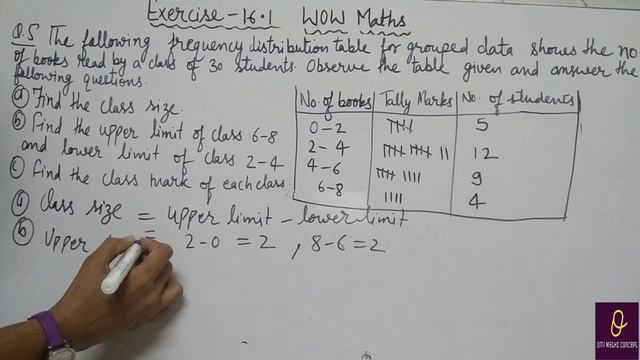 Exercise-16.1 WOW Maths
Q.5 The following frequency distribution table for grouped data shows the no
of books read by a class of 30 students. Observe the table given and answer the
following questions.
ⓐ Find the class size.
ⓑ Find the upper limit of class 6-8
and lower limit of class 2-4
ⓒ Find the class mark of each class.
No. of books Tally Marks No. of students
0-2 5
2-4 12
4-6 9
6-8 4
ⓐ Class size = upper limit - lower limit
= 2-0 = 2 , 8-6=2
ⓑ Upper
OMI MATHS CONCEPT